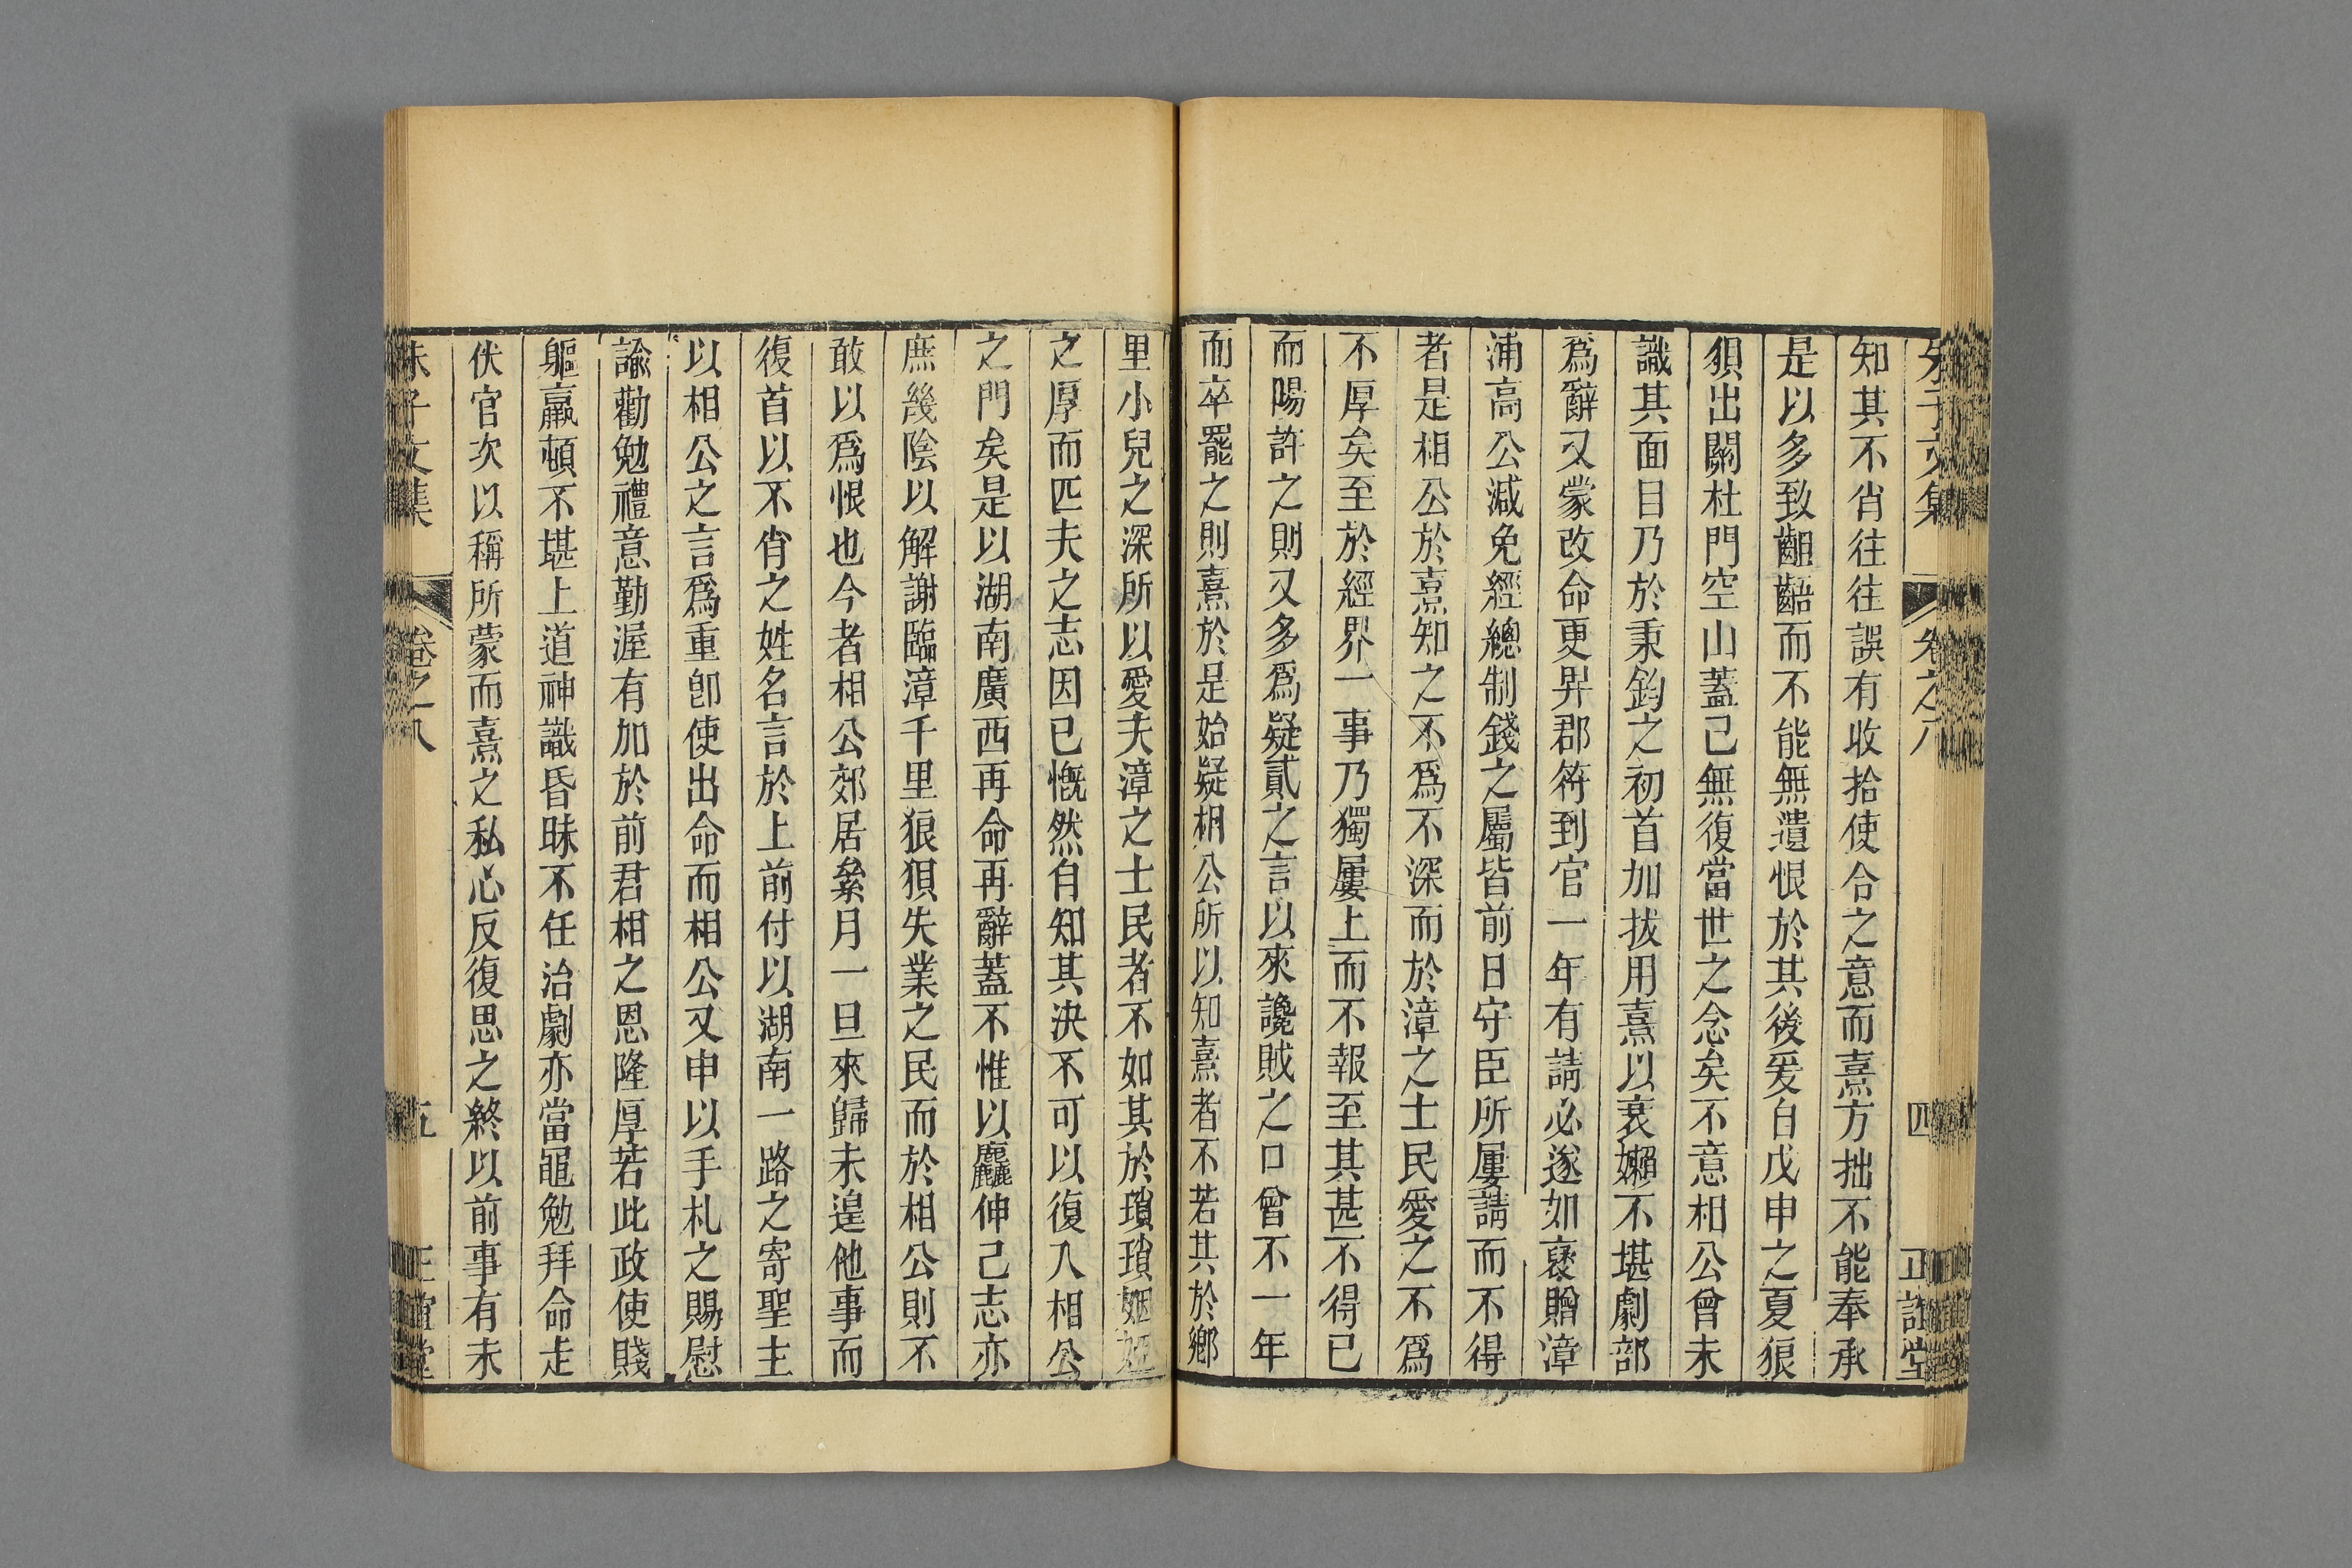 朱子文集 卷之八 四 正誼堂
知其不肖往往誤有收拾使令之意而熹方拙不能奉承
是以多致齟齬而不能無遺恨於其後爰自戊申之夏狼
狽出關杜門空山蓋已無復當世之念矣不意相公曾未
識其面目乃於秉鈞之初首加拔用熹以衰嬾不堪劇部
爲辭又蒙改命更畀郡符到官一年有請必遂如褒贈漳
浦高公減免經總制錢之屬皆前日守臣所屢請而不得
者是相公於熹知之不爲不深而於漳之士民愛之不爲
不厚矣至於經界一事乃獨屢上而不報至其甚不得已
而陽許之則又多爲疑貳之言以來讒賊之口曾不一年
而卒罷之則熹於是始疑相公所以知熹者不若其於鄉
里小兒之深所以愛夫漳之士民者不如其於瑣瑣姻婭
之厚而匹夫之志因已慨然自知其決不可以復入相公
之門矣是以湖南廣西再命再辭蓋不惟以麤伸己志亦
庶幾陰以解謝臨漳千里狼狽失業之民而於相公則不
敢以爲恨也今者相公郊居絫月一旦來歸未遑他事而
復首以不肖之姓名言於上前付以湖南一路之寄聖主
以相公之言爲重卽使出命而相公又申以手札之賜慰
諭勸勉禮意勤渥有加於前君相之恩隆厚若此政使賤
軀羸頓不堪上道神識昏昧不任治劇亦當黽勉拜命走
伏官次以稱所蒙而熹之私心反復思之終以前事有未
朱子文集 卷之八 五 正誼堂